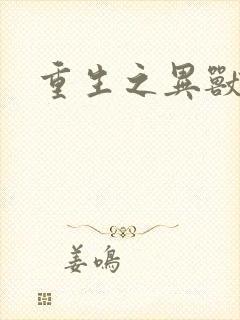 重生之異獸
姜鳴